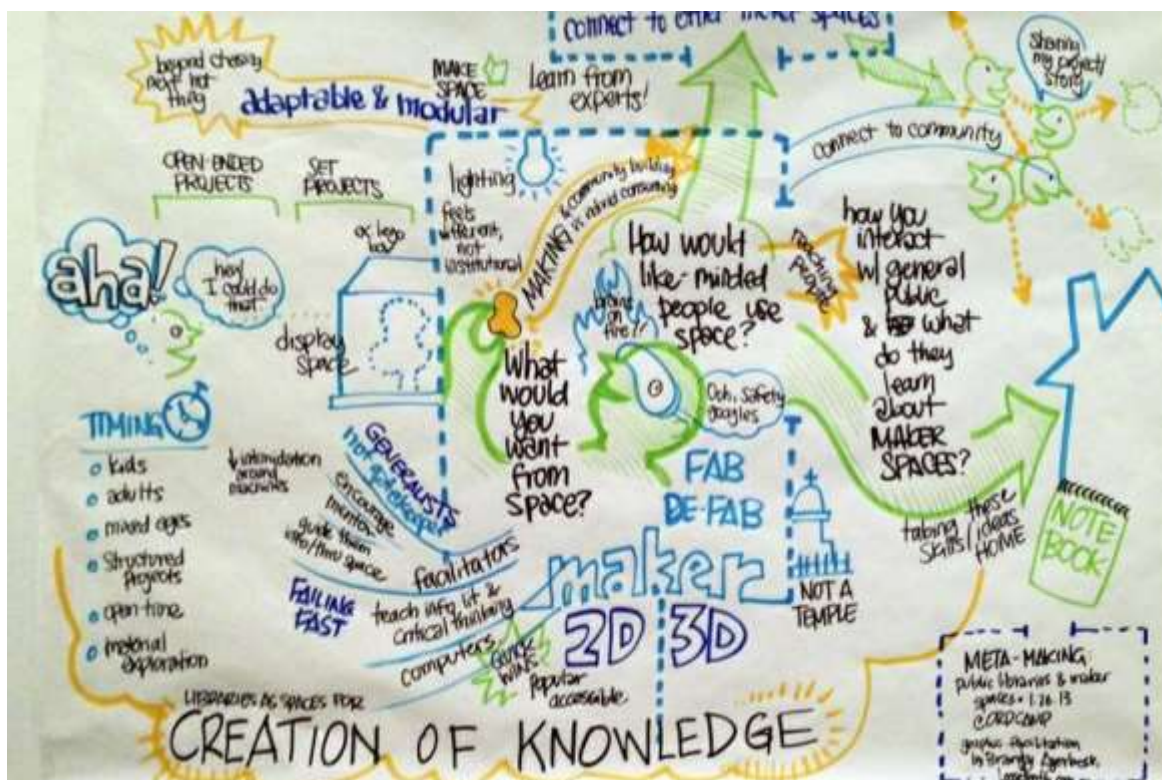 connect to other maker spaces
beyond chasing
next hot
thing
adaptable & modular
MAKE
SPACE
Learn from
experts!
sharing
my project/
story
connect to community
OPEN-ENDED
PROJECTS
SET
PROJECTS
ex lego
lighting
feels
different,
not
institutional
MAKING
& community building
aha!
hey
I could do
that
display
space
How would
like-minded
people use
space?
brains
on
fire!!
teaching
people
how you
interact
w/ general
public
& what
do they
learn
about
MAKER
SPACES?
What
would
you
want
from
space?
Ooh, safety
goggles
TIMING
kids
adults
mixed ages
structured
projects
open time
material
exploration
↓ intimidation
around
machines
GENERALISTS
not gatekeepers
encourage
mentors
guide them
into/thru space
facilitators
FAILING
FAST
teach info lit &
critical thinking
computers
QUICK
WINS
popular
accessible
FAB
DE-FAB
maker
2D 3D
NOT A
TEMPLE
taking these
skills/ideas
HOME
NOTE
BOOK
LIBRARIES AS SPACES FOR
CREATION OF KNOWLEDGE
META-MAKING:
public libraries & maker
spaces • 1.26.13
@ORDCAMP
graphic facilitation
by Brandy Agerbeck,